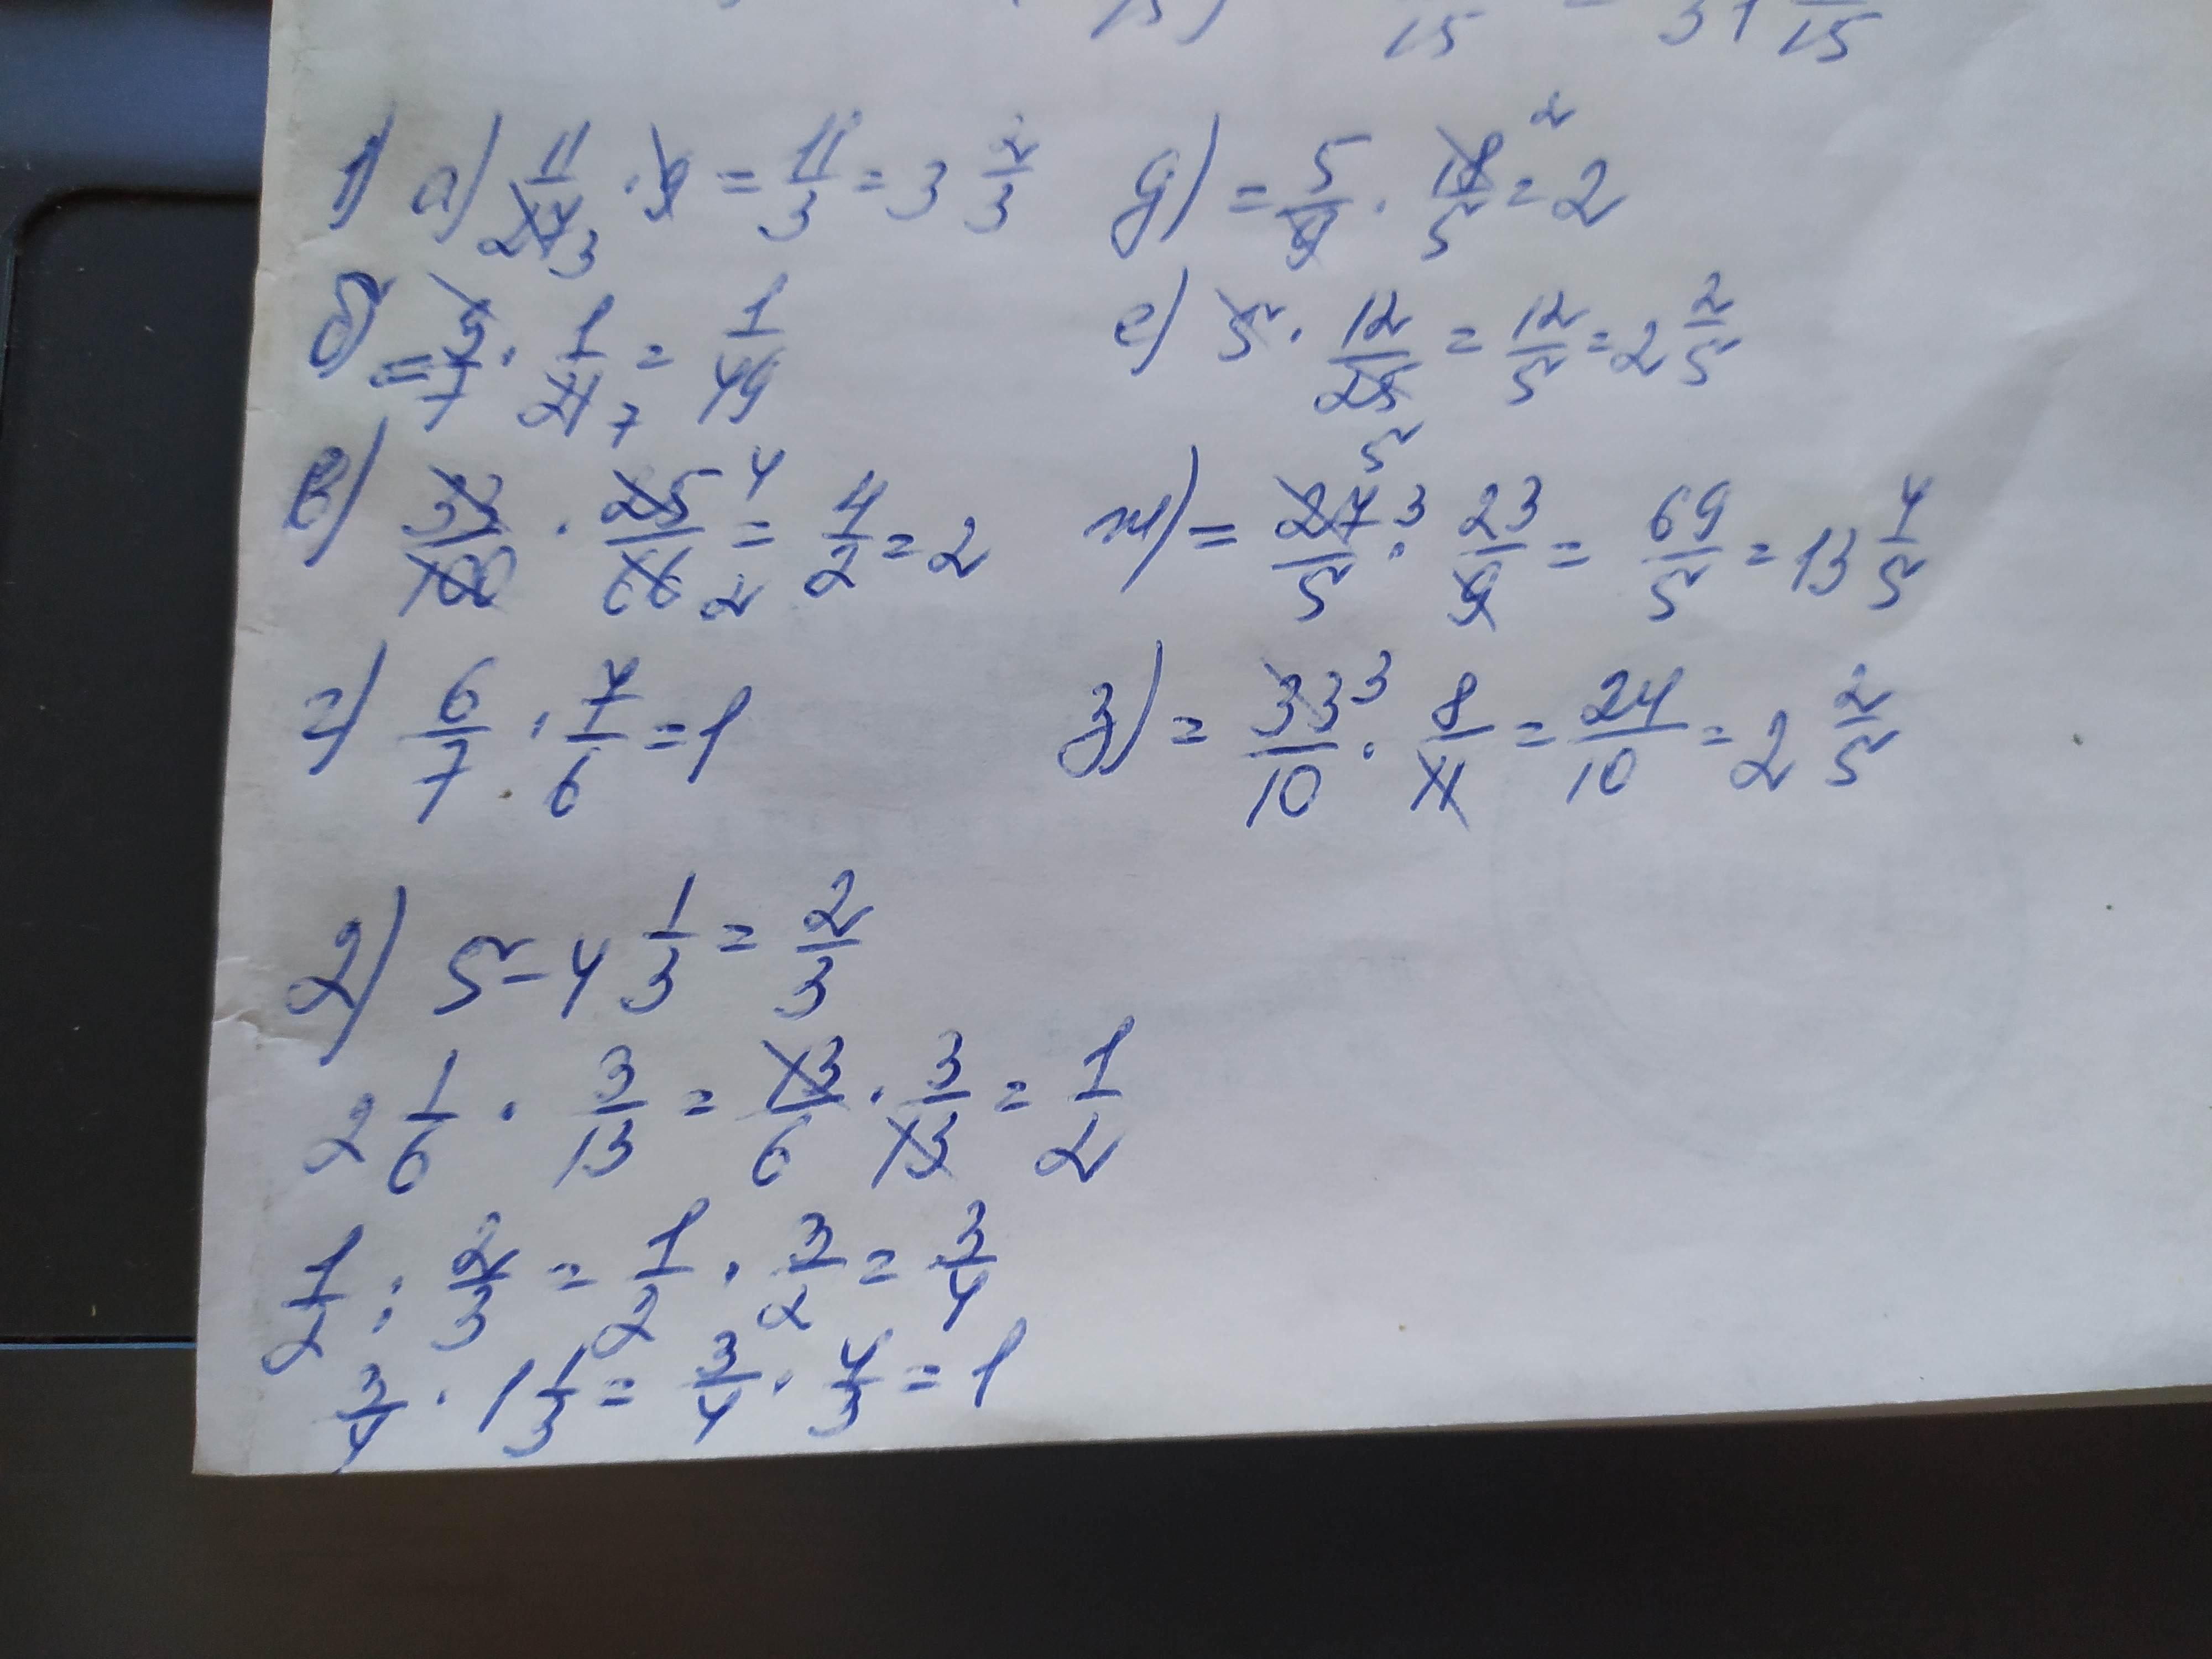 15) 15 = 31 15
1) а) 11/27 3 · 9 = 11/3 = 3 2/3
д) = 5/9 · 18/5 2 = 2
б) = 3/7 · 1/21 7 = 1/49
е) 5 · 12/25 5 = 12/5 = 2 2/5
в) 33/100 · 25/66 4 2 = 4/2 = 2
ж) = 27/5 3 · 23/9 = 69/5 = 13 4/5
г) 6/7 · 7/6 = 1
з) = 33/10 3 · 8/11 = 24/10 = 2 2/5
2) 5 - 4 1/3 = 2/3
2 1/6 · 3/13 = 13/6 · 3/13 = 1/2
1/2 : 2/3 = 1/2 · 3/2 = 3/4
3/4 · 1 1/3 = 3/4 · 4/3 = 1